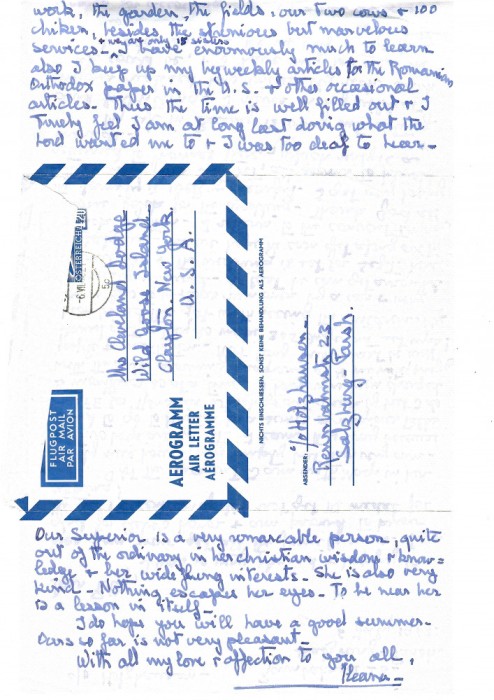 work, the garden, the fields, our two cows & 100
chikens, besides the studious but marvelous
services - & way at only 15 sisters I have enormously much to learn
also I keep up my byweekly articles for the Romanian
Orthodox paper in the U.S. & other occasional
articles. Thus the time is well filled out & I
truely feel I am at long last doing what the
Lord wanted me to & I was too deaf to hear -
ÖSTERREICH
-6 VII
Mrs Cleveland Dodge
Wild Goose Island
Clayton. New York.
U. S. A.
FLUGPOST
AIR MAIL
PAR AVION
AEROGRAMM
AIR LETTER
AÉROGRAMME
NICHTS EINSCHLIESSEN, SONST KEINE BEHANDLUNG ALS AEROGRAMM
ABSENDER: c/o Holzhausen -
23
Salzburg - Parsch.
Our Superior is a very remarkable person, quite
out of the ordinary in her christian wisdom & know=
ledge & her wide flung interests - She is also very
kind - Nothing escapes her eyes - To be near her
is a lesson in itself -
I do hope you will have a good summer -
Ours so far is not very pleasant -
With all my love & affection to you all,
Ileana -